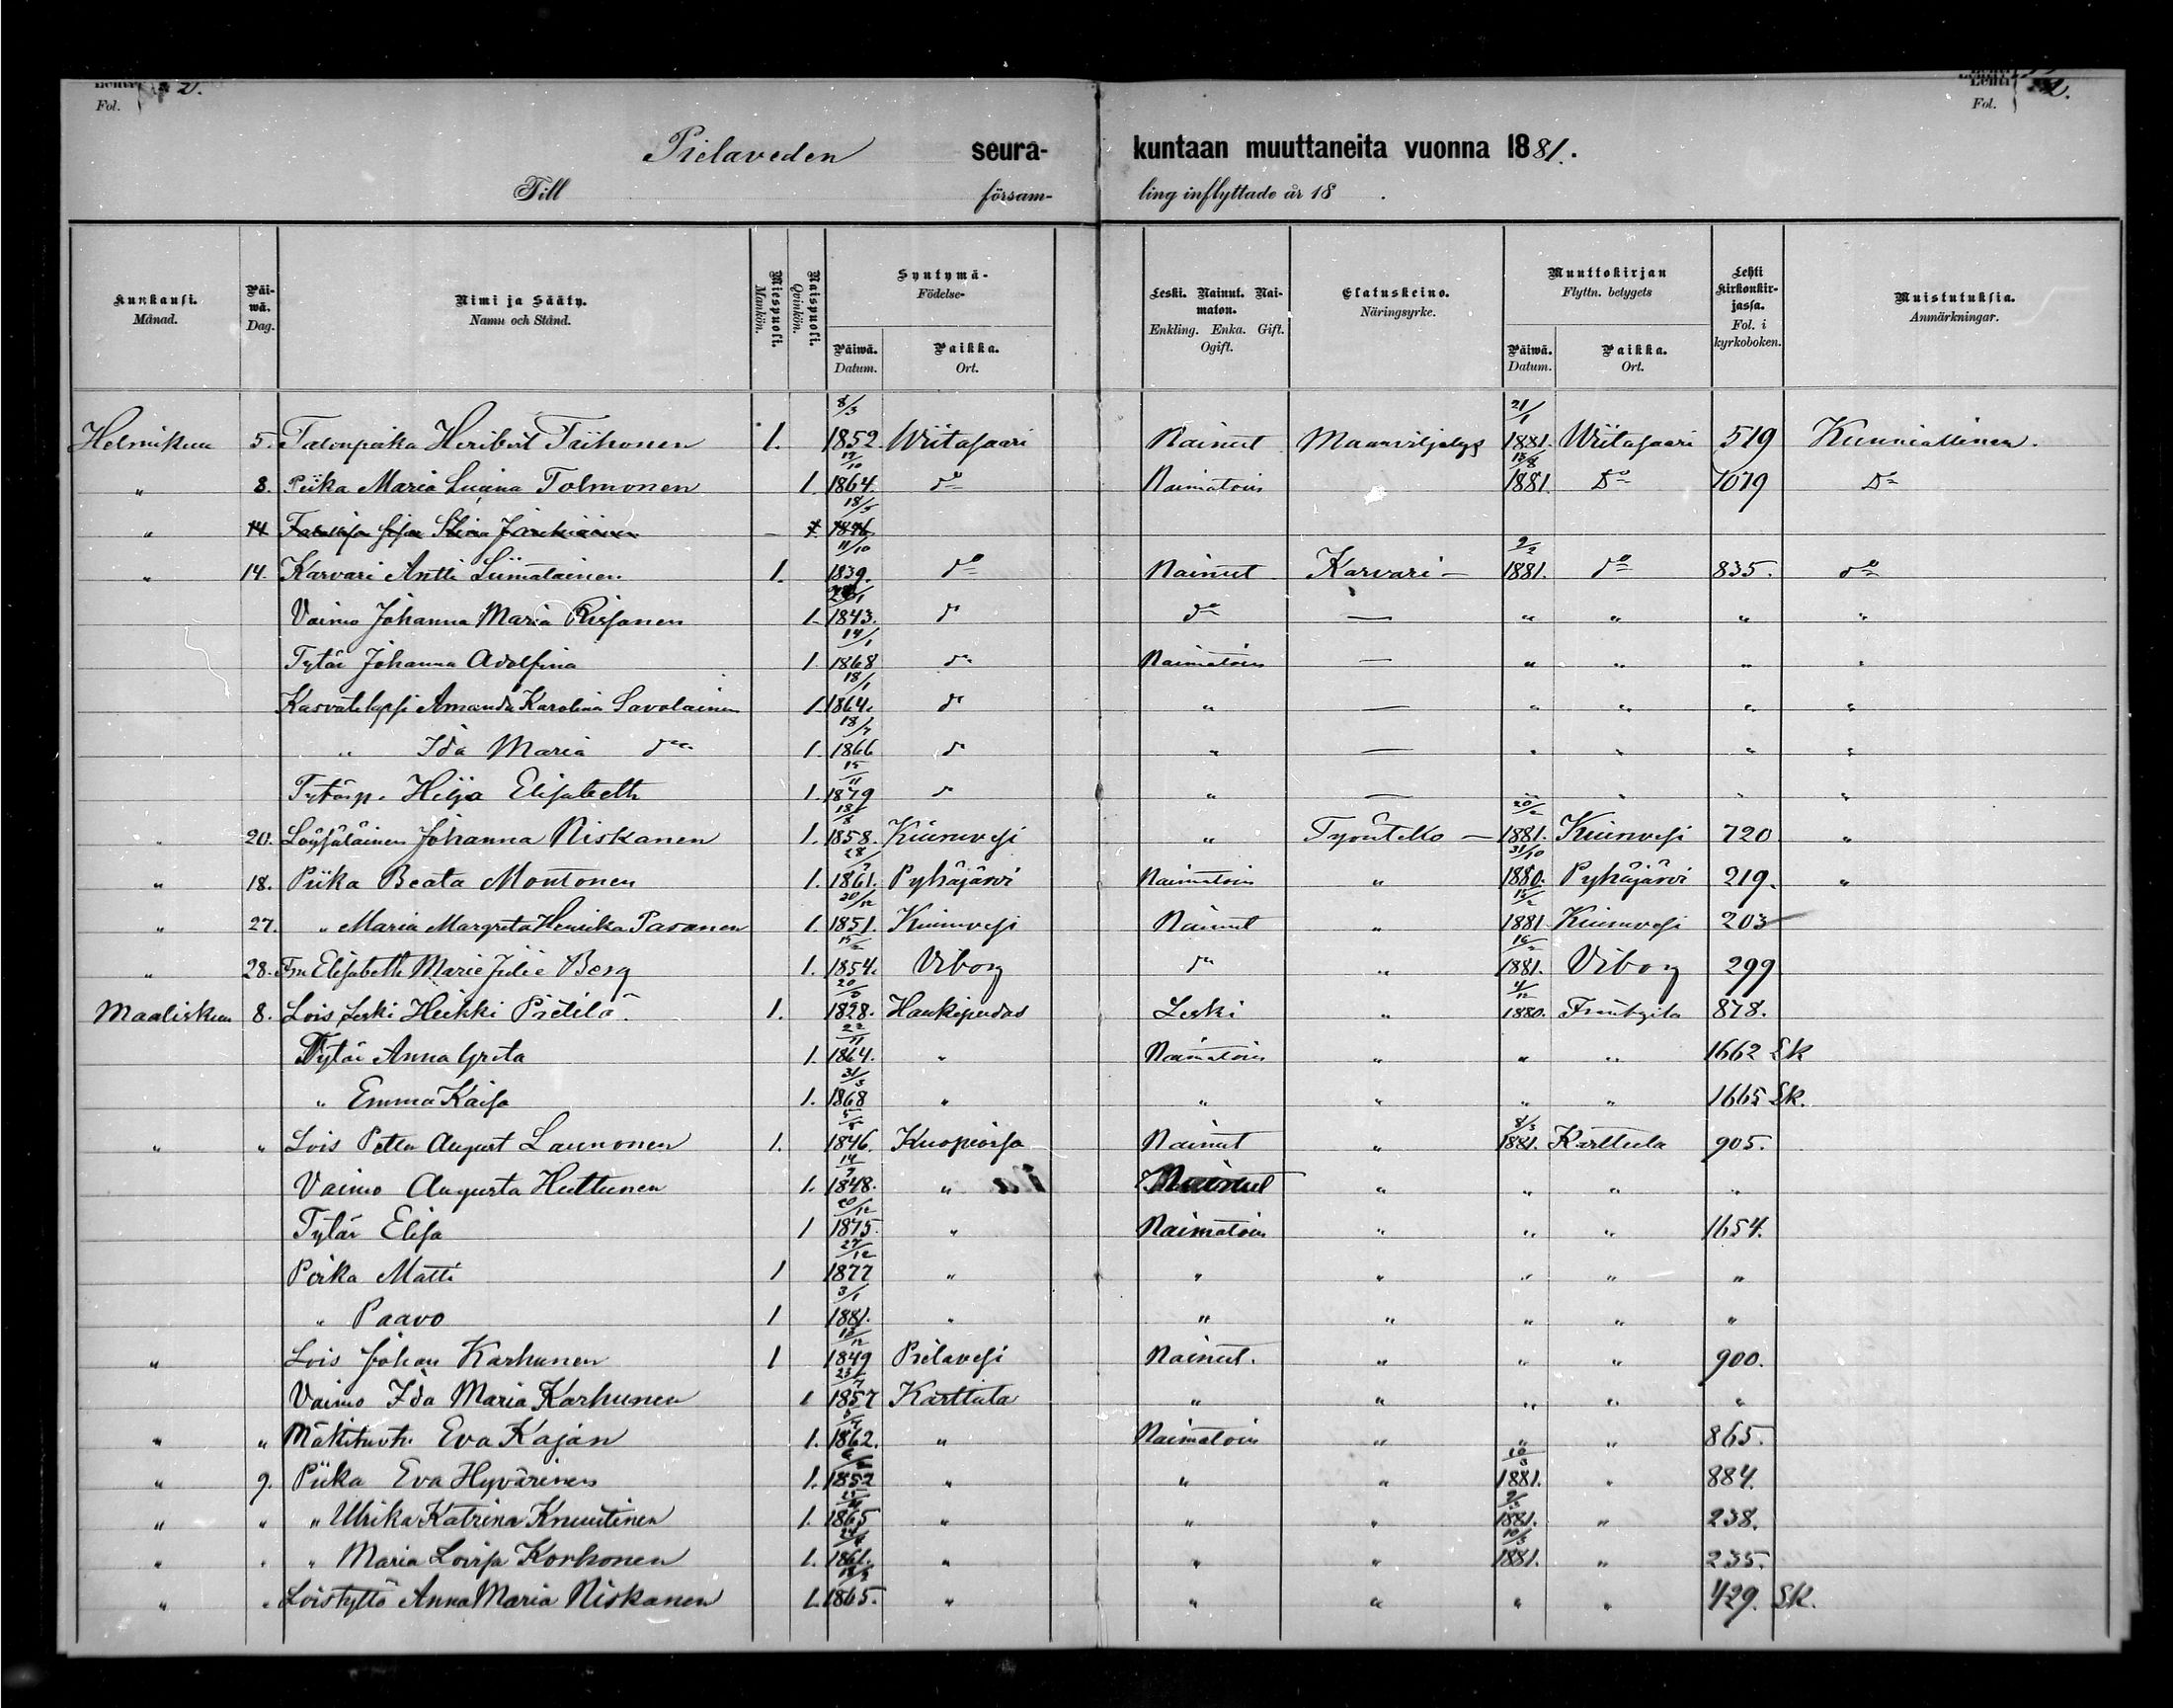 Lehti 2.
Fol.
Lehti 2.
Fol.
Pielaveden seura- kuntaan muuttaneita vuonna 1881.
Till försam- ling inflyttade år 18 .
Kuukausi. Månad. Päiwä. Dag. Nimi ja Sääty. Namn och Stånd. Miespuoli. Mankön. Naispuoli. Qvinkön. Syntymä- Födelse- Päiwä. Datum. Paikka. Ort. Leski. Nainut. Naimaton. Enkling. Enka. Gift. Ogift. Elatuskeino. Näringsyrke. Muuttokirjan Flyttn. betygets Päiwä. Datum. Paikka. Ort. Lehti kirkonkirjassa. Fol. i kyrkoboken. Muistutuksia. Anmärkningar.
Helmikuu 5. Talonpoika Heribert Tiihonen 1. 8/3 1852. Wiitasaari Nainut Maanviljelys 21/1 1881. Wiitasaari 519 Kunniallinen.
" 8. Piika Maria Luiina Tolmonen 1. 17/10 1864. do Naimatoin 1881. Do 1019 Do
" 14 Stina 1 18/5 1846
" 14. Karvari Antti Liimatainen 1. 11/10 1839. do Nainut Karvari — 9/2 1881. do 835. do
Vaimo Johanna Maria 1. 1843. do do — " " " "
Tytär Johanna Adolfina 1 14/1 1868 do Naimatoin — " " " "
Kasvatelapsi Amanda Karolina Savolainen 1. 18/1 1864. do " — " " " "
" Ida Maria do 1. 18/7 1866 do " — " " " "
Tytärp. Hilja Elisabeth 1. 15/11 1879 do " — " " " "
" 20. Löysäläinen Johanna Niskanen 1. 18/8 1858. Kiuruvesi " Työnteko — 20/2 1881. Kiuruvesi 720 "
" 18. Piika Beata Montonen 1. 28/7 1861. Pyhäjärvi Naimatoin " 31/10 1880. Pyhäjärvi 219. "
" 27. " Maria Margreta Henrika Pasanen 1. 20/12 1851. Kiuruvesi Nainut " 15/2 1881 Kiuruvesi 203
" 28. Fru Elisabeth Marie Julie Berg 1. 15/2 1854. Viborg do " 16/2 1881. Viborg 299
Maaliskuu 8. Lois Leski Heikki Pietilä 1. 1828. Haukipudas Leski " 4/12 1880. 878.
Tytär Anna Greta 1. 22/11 1864. " Naimatoin " " " 1662 Sk
" Emma Kaisa 1. 31/3 1868 " " " " " 1665 Sk.
" " Lois Petter August Launonen 1. 5/5 1846. Kuopiossa Nainut " 8/3 1881. Karttula 905.
Vaimo Augusta Huttunen 1. 14/7 1848. " Nainut " " " "
Tytär Elisa 1 20/12 1875. " Naimatoin " " " 1654.
Poika Matti 1 27/12 1877 " " " " " "
" Paavo 1 3/1 1881. " " " " " "
" Lois Johan Karhunen 1 13/12 1849 Pielavesi Nainut. " " " 900.
Vaimo Ida Maria Karhunen 1 23/7 1857 Karttula " " " " "
" " Mäkitupl. Eva Kajan 1. 1862. " Naimatoin " " " 865.
" 9. Piika Eva Hyvärinen 1. 1852 " " " 10/3 1881. " 884.
" " " Ulrika Katrina Knuutinen 1. 1865 " " " 9/3 1881. " 238.
" " " Maria Lovisa Korhonen 1. 1861. " " " 10/3 1881. " 235.
" " Loistyttö Anna Maria Niskanen 1. 1865. " " " " " 429. Sk.